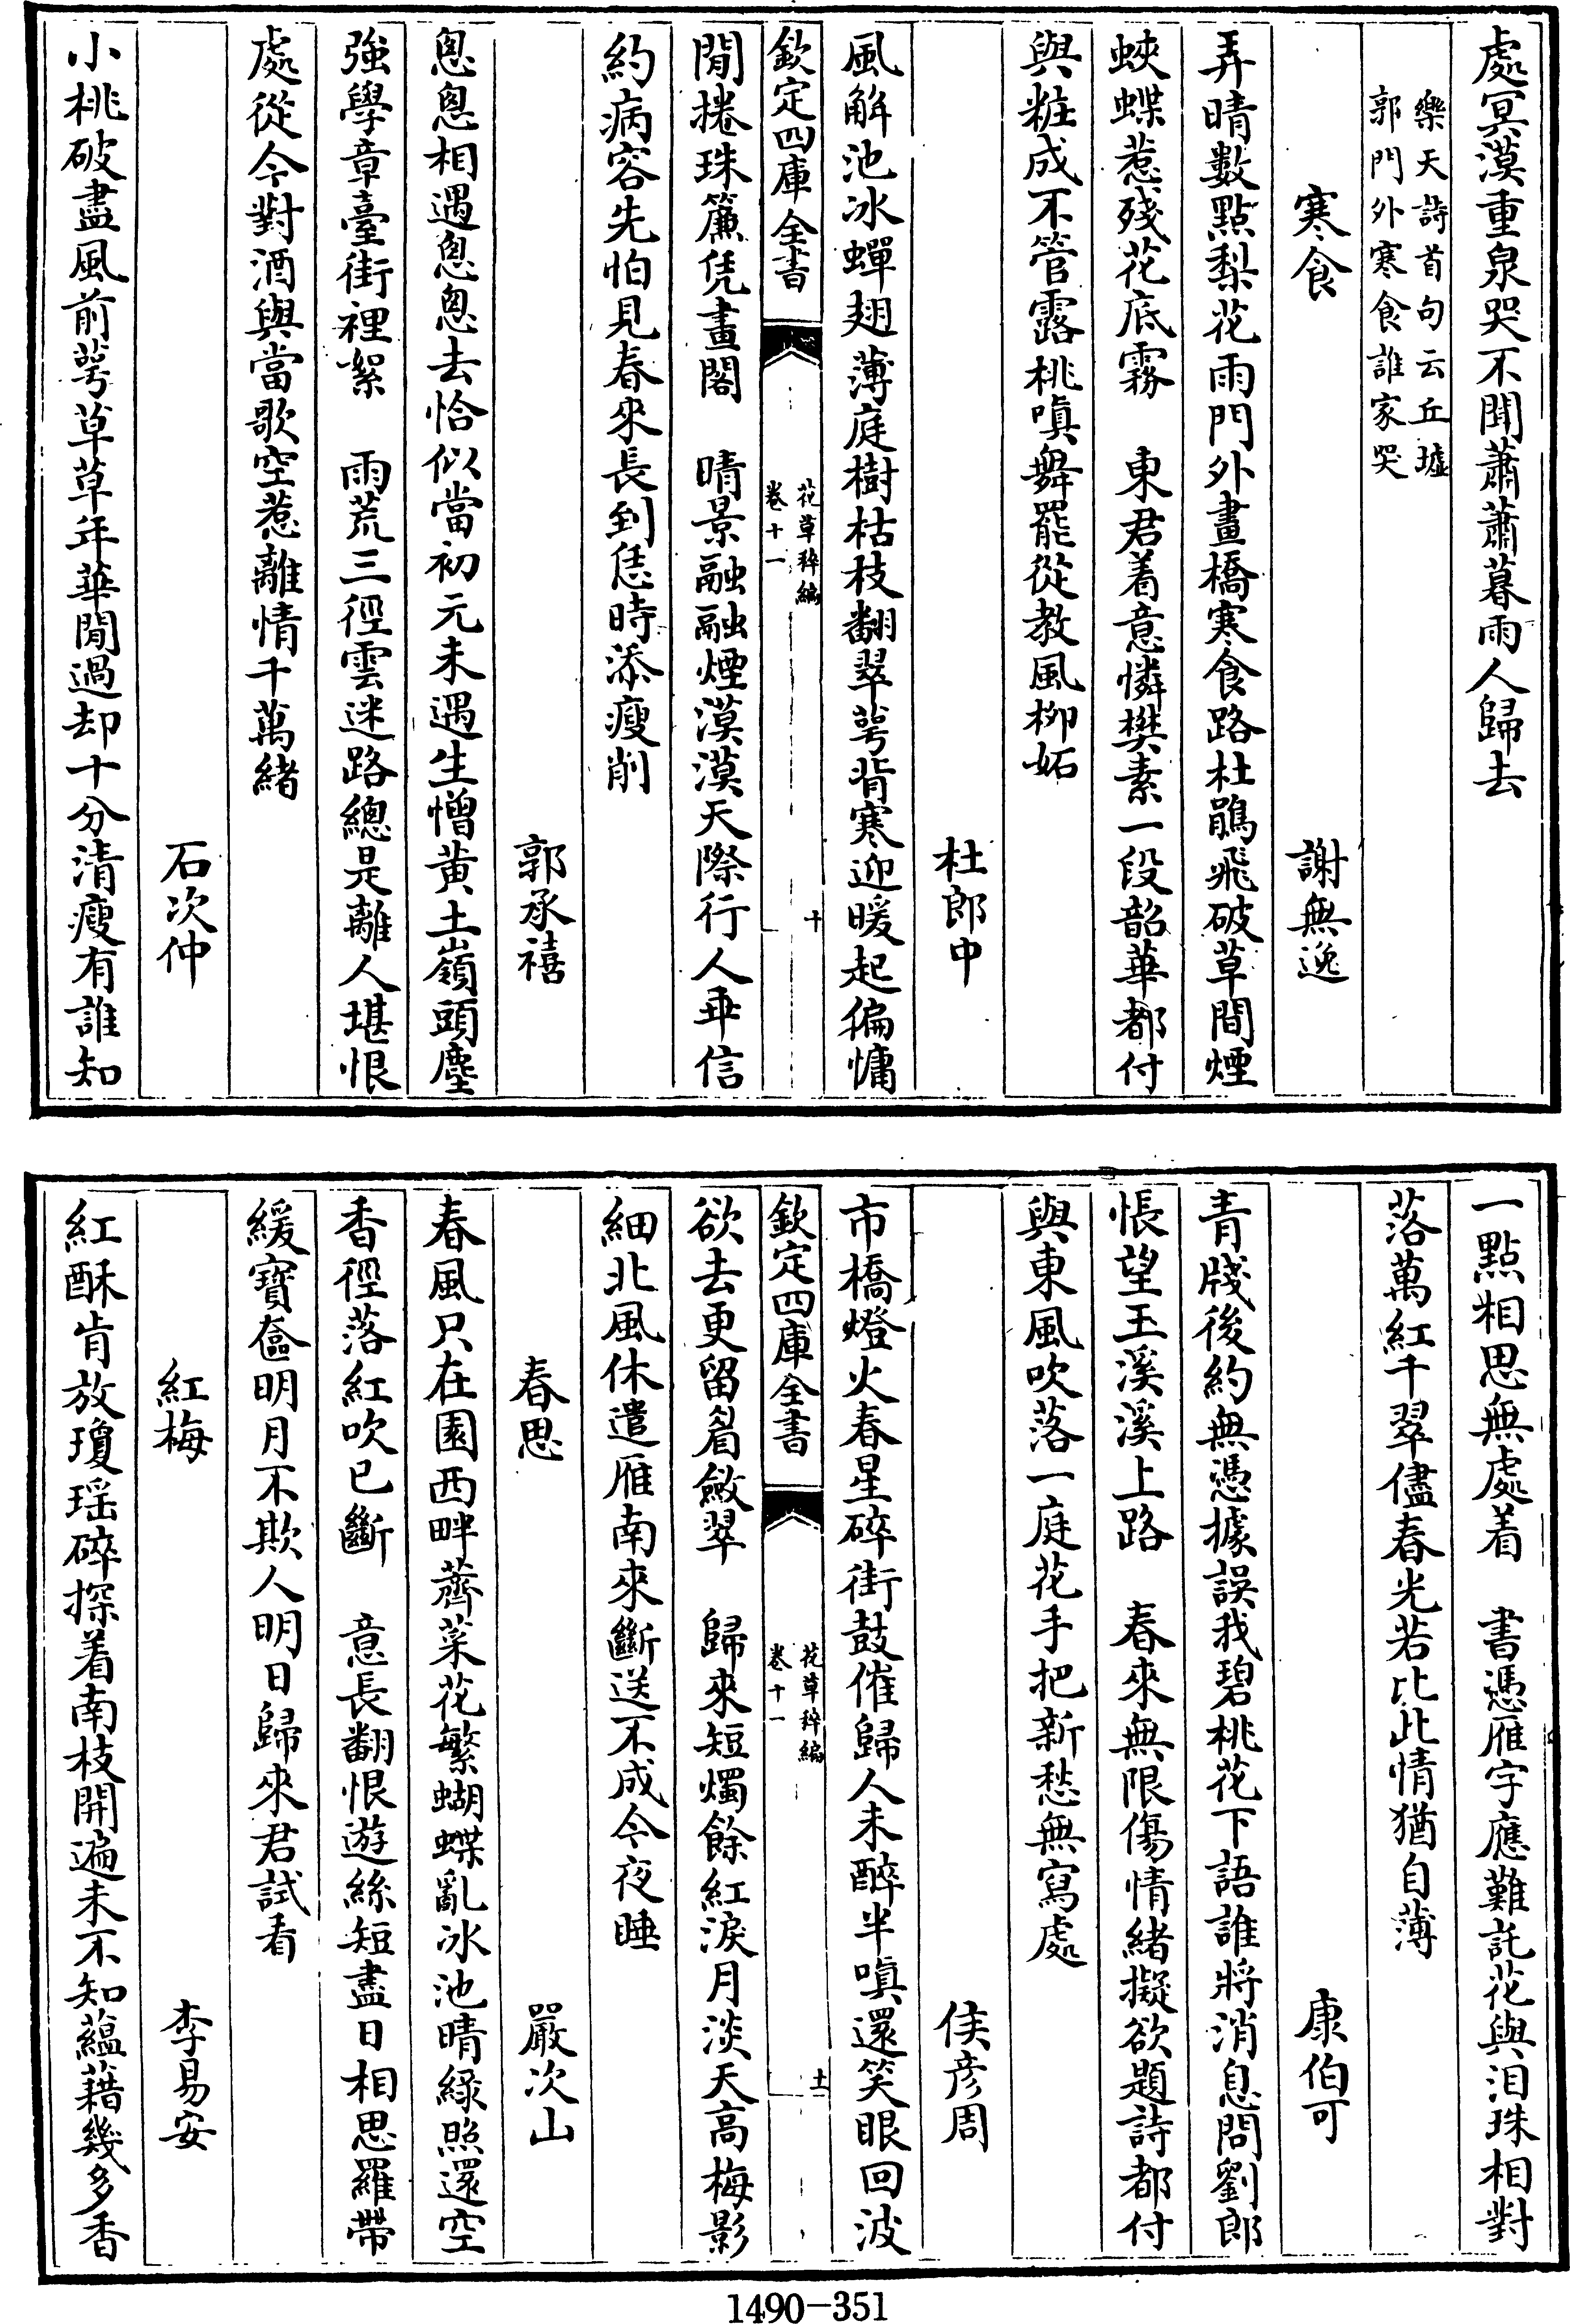 處冥漠重泉哭不聞蕭蕭暮雨人歸去
樂天詩首句云丘墟
郭門外寒食誰家哭
寒食　謝無逸
弄晴數點梨花雨門外畫橋寒食路杜鵑飛破草間煙
蛺蝶惹殘花底霧　東君着意憐樊素一段韶華都付
與粧成不管露桃嗔舞罷從教風柳妬
杜郎中
風解池冰蟬翅薄庭樹枯枝翻翠萼背寒迎暖起偏慵
欽定四庫全書
花草稡編
卷十一
十
閒捲珠簾凭畫閣　晴景融融煙漠漠天際行人乖信
約病容先怕見春來長到恁時添瘦削
郭承禧
怱怱相遇怱怱去恰似當初元未遇生憎黄土嶺頭塵
強學章臺街裡絮　雨荒三徑雲迷路總是離人堪恨
處從今對酒與當歌空惹離情千萬緒
石次仲
小桃破盡風前萼草草年華閒過却十分清瘦有誰知
一點相思無處着　書憑雁字應難託花與泪珠相對
落萬紅千翠儘春光若比此情猶自薄
康伯可
青牋後約無憑據誤我碧桃花下語誰將消息問劉郎
悵望玉溪溪上路　春來無限傷情緒擬欲題詩都付
與東風吹落一庭花手把新愁無寫處
侯彦周
市橋燈火春星碎街鼓催歸人未醉半嗔還笑眼回波
欽定四庫全書
花草稡編
卷十一
十一
欲去更留眉斂翠　歸來短燭餘紅淚月淡天高梅影
細北風休遣雁南來斷送不成今夜睡
春思　嚴次山
春風只在園西畔薺菜花繁蝴蝶亂冰池晴緑照還空
香徑落紅吹已斷　意長翻恨遊絲短盡日相思羅帶
緩寶奩明月不欺人明日歸來君試看
紅梅　李易安
紅酥肯放瓊瑤碎探着南枝開遍未不知藴藉幾多香
1490-351